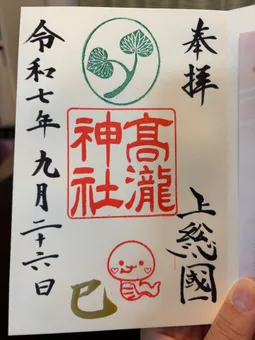 奉拝
上総國一
高瀧
神社
巳
令和七年九月二十六日